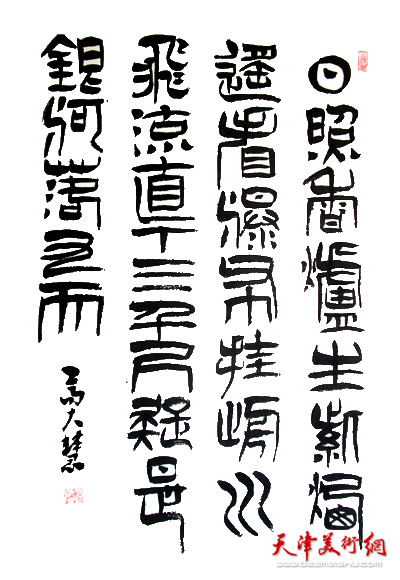 日照香爐生紫煙
遙看瀑布挂前川
飛流直下三千尺疑是
銀河落九天
天津美術網